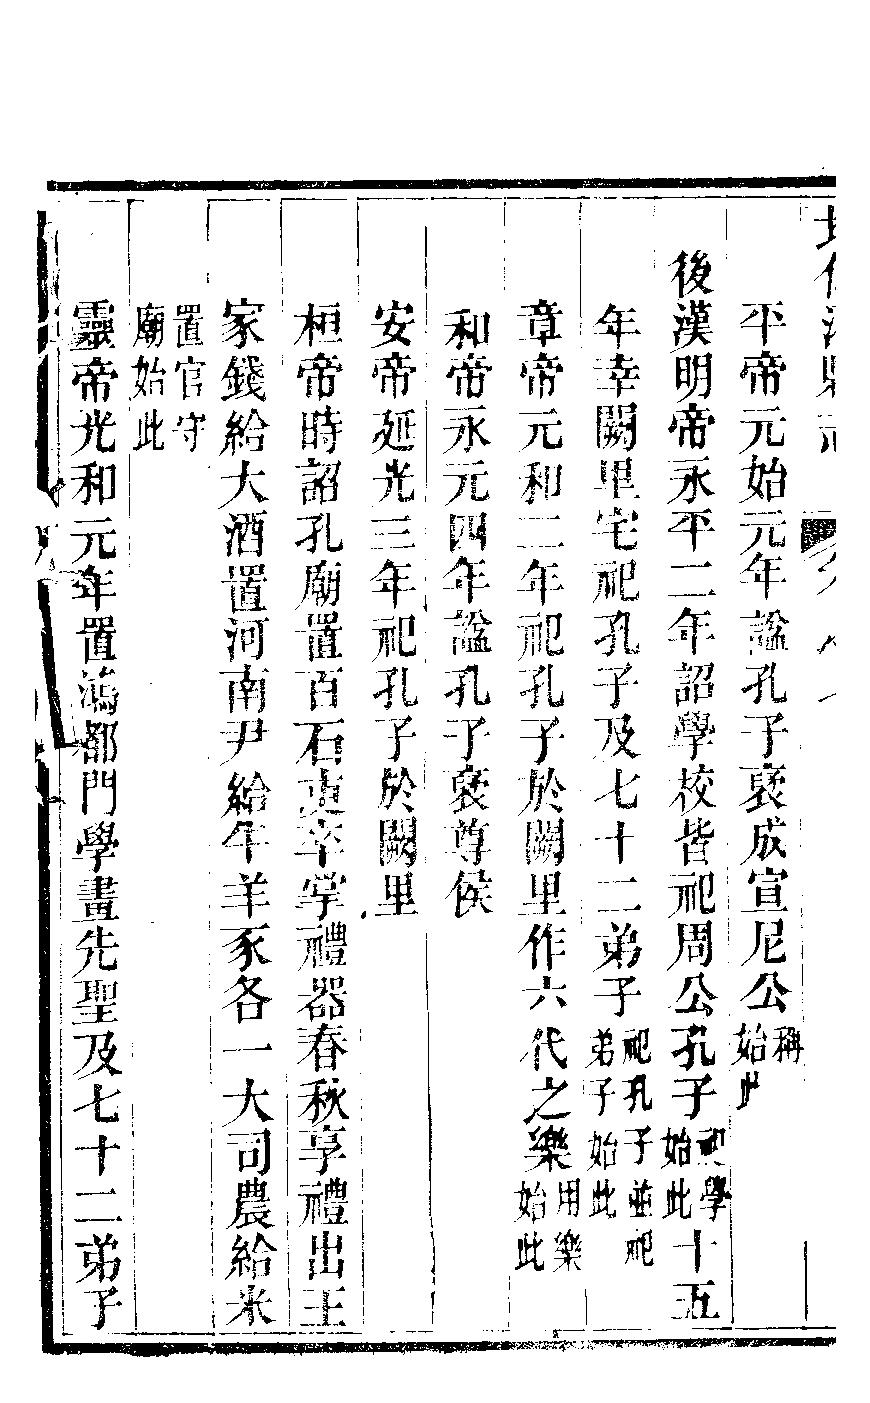 平帝元始元年諡孔子襃成宣尼公稱始此
後漢明帝永平二年詔學校皆祀周公孔子祀學始此十五
年幸闕里宅祀孔子及七十二弟子祀孔子並祀弟子始此
章帝元和二年祀孔子於闕里作六代之樂用樂始此
和帝永元四年諡孔子襃尊侯
安帝延光三年祀孔子於闕里
桓帝時詔孔廟置百石吏卒掌禮器春秋享禮出王
家錢給大酒置河南尹給牛羊豕各一大司農給米
置官守廟始此
靈帝光和元年置鴻都門學畫先聖及七十二弟子